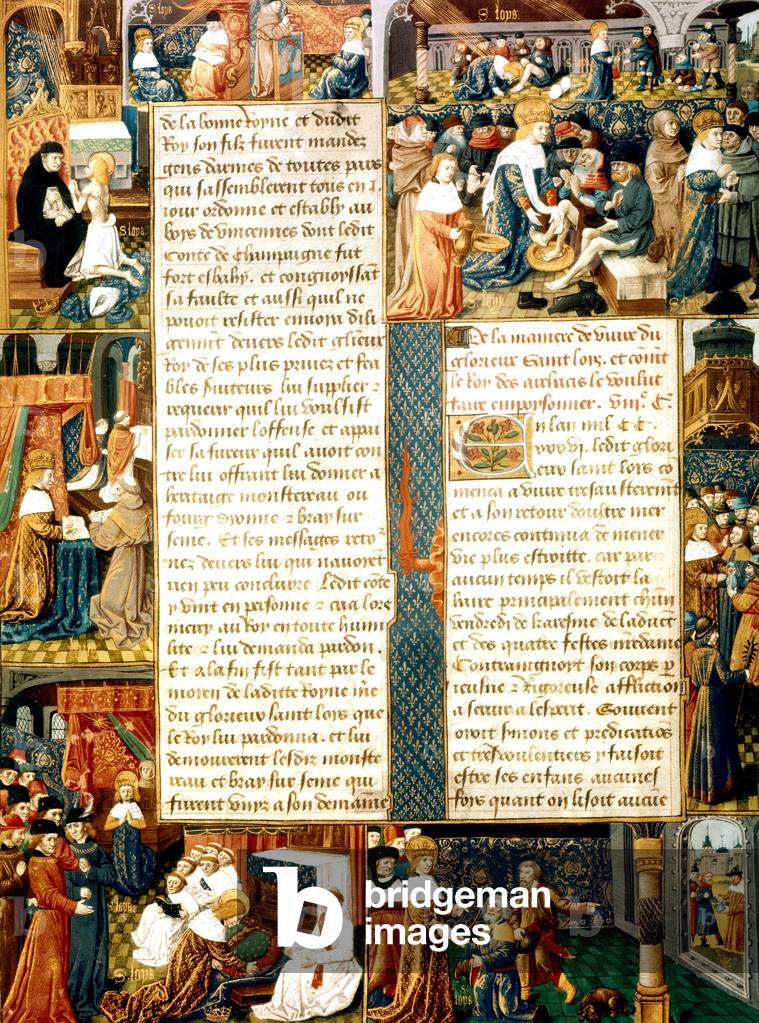 S. loys
S. loys
de la bonne Royne et dudit
Roy son filz furent mandez
gens darmes de toutes pars
qui sassemblerent tous en .I.
iour ordonne et estably au
boys de vincennes dont ledit
Conte de Champaigne fut
fort esbahy. et congnoyssant
sa faulte et aussi quil ne
pouoit resister enuoya dili
gemment deuers ledit glieux
Roy de ses plus priuez et fea
bles seruiteurs lui supplier et
requerir quil lui voulsist
pardonner loffense et appai
ser sa fureur quil auoit con
tre lui offrant lui donner a
heritaige monstereau ou
fourg dyonne et bray sur
seine. Et ses messages retor
nez deuers lui qui nauoyent
rien peu conclurre Ledit cote
y vint en personne et cria lors
mercy au Roy en toute humi
lite et lui demanda pardon.
Et a la fin fist tant par le
moyen de laditte Royne me
du glorieux saint loys que
le Roy lui pardonna. et lui
demourerent lesdiz monste
reau et bray sur seine qui
furent vnyz a son demaine
De la maniere de viure du
glorieux Saint loys. et comt
le Roy des arsacis le voulut
faire empoysonner. viij.e C.
En lan mil CC.
xxxvi. ledit glori
eux saint loys co
menca a viure tresausterement
et a son retour doultre mer
encores continua de mener
vie plus estroitte. car par
aucun temps il vestoit la
haire principalement chun
vendredi de karesme de laduet
et des quatre festes
Contraingnoyt son corps p
ieusne et Rigoreuse affliction
a seruir a lesperit. Souuent
oyoit sermons et predicatios
et tresvoulentiers y faisoit
estre ses enfans aucunes
fors quant on lisoit aucune
S. loys
S. loys
S. loys
S. loys
S. loys
b bridgeman
images